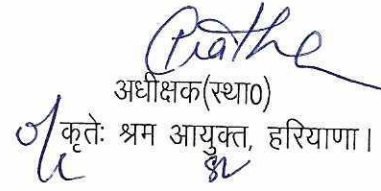 अधीक्षक(स्था0)
कृतेः श्रम आयुक्त, हरियाणा।